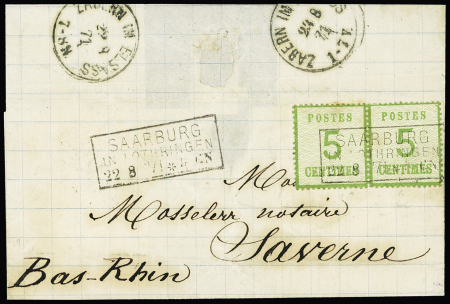 ZABERN IM ELSASS
22 8
71
N7-8
ZABERN IM
23 8
71
1-7 V.
SAARBURG
IN LOTHRINGEN
22 8 71
POSTES
5
CENTIMES
POSTES
5
CENTIMES
SAARBURG
LOTHRINGEN
22 8
Mosselerr notaire
Saverne
Bas-Rhin